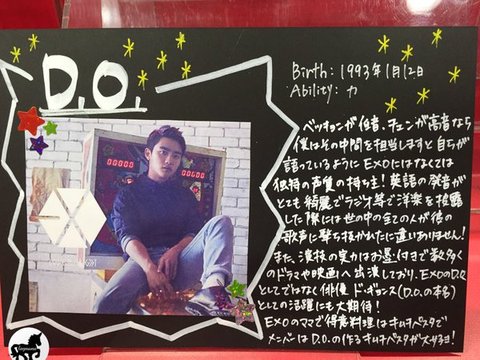 D.O.
Birth: 1993年1月12日
Ability: カ
ベッキョンが低音、チェンが高音なら
僕はその中間を担当しますと自らが
語っているようにEXOにはなくては
独特の声質の持ち主!英語の発音が
とても綺麗でラジオ等で洋楽を披露
した際には世の中の全ての人が彼の
歌声に撃ち抜かれたに違いありません!
また、演技の実力はお墨付きで数多く
のドラマや映画へ出演しており、EXOのD.O
としてではなく俳優 ド・ギョンス(D.O.の本名)
としての活躍にも大期待!
EXOのママで得意料理はキムチパスタで
メンバーはD.O.の作るキムチパスタが大好き!